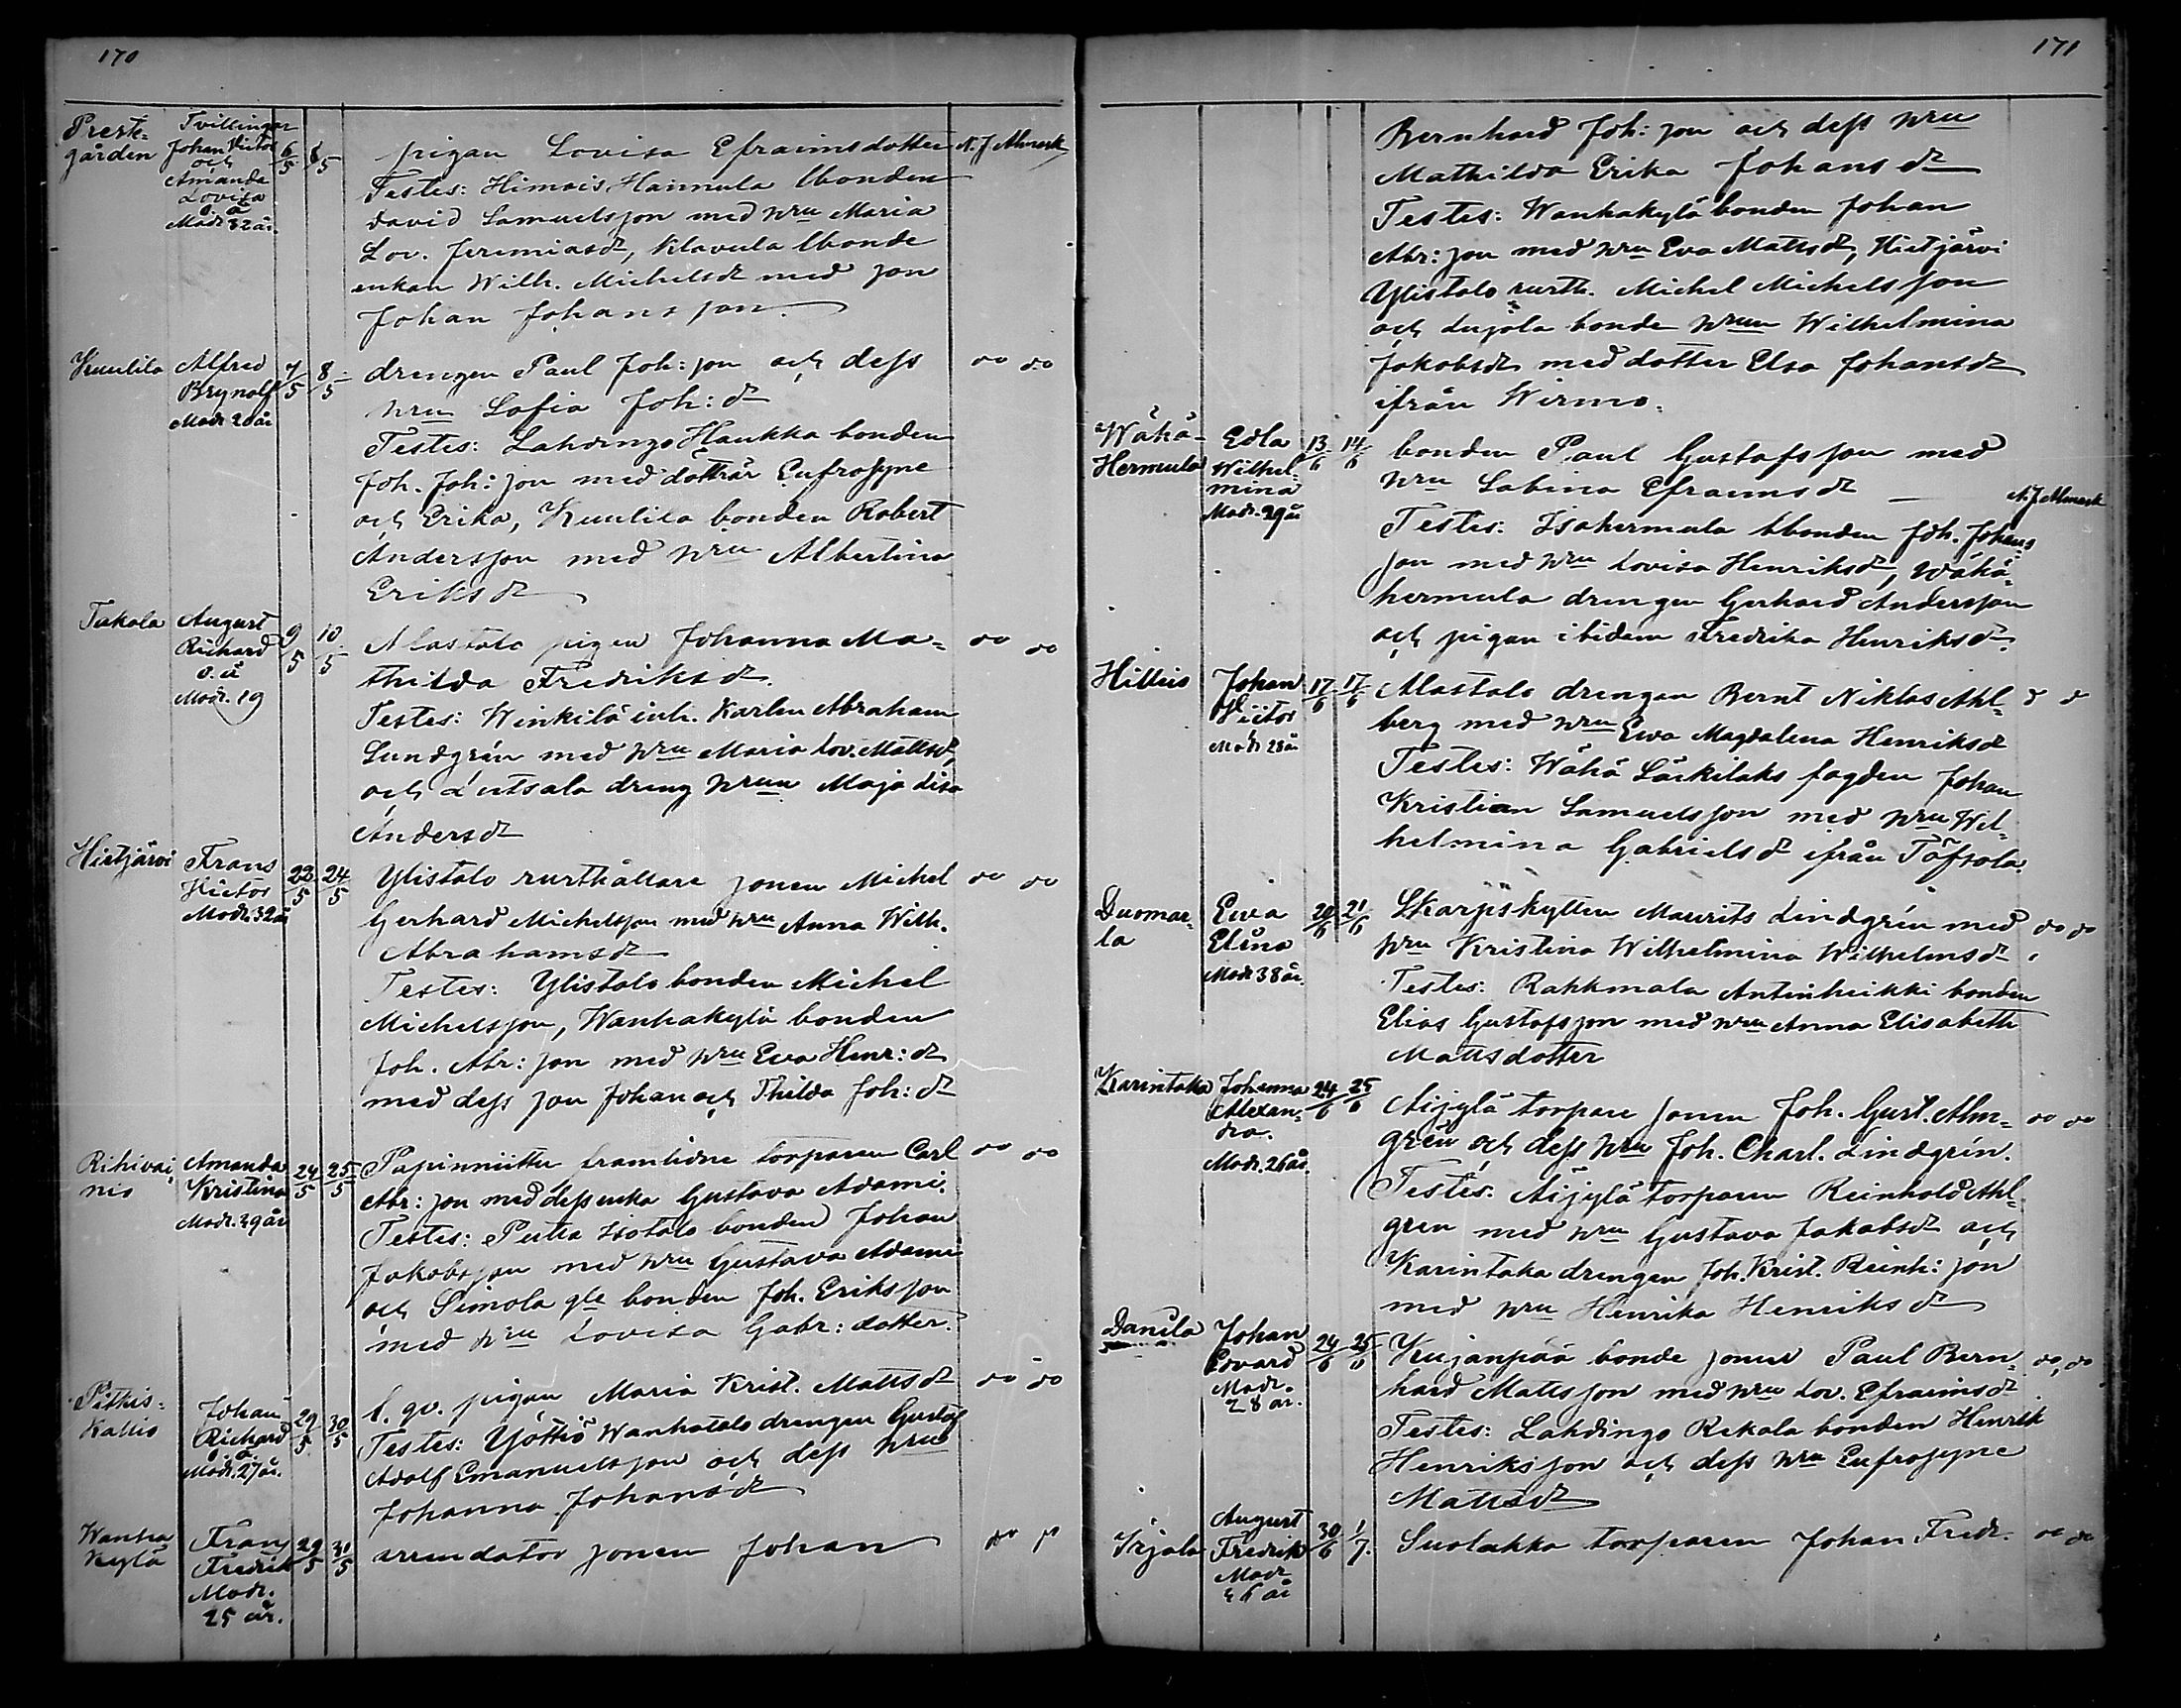 170
Prest=
gården
Tvillingar
Johan Victor
och
Amanda
Lovisa
o. ä
Modr. 32 år.
6/5 8/5
pigan Lovisa Efraimsdotter N. J. Almark
Testes: Himois Hannula bonden
David Samuelsson med hru Maria
Lov. Jeremiasdr, Klavula bonde
enkan Wilh. Michelsdr med son
Johan Johansson.
Kuulila
Alfred
Brynolf
Modr. 20 år
7/5 8/5
drengen Paul Joh: son och dess do do
hru Sofia Joh: dr
Testes: Lahdingo Haukka bonden
Joh. Joh: son med dottrar Eufrosyne
och Erika, Kuulila bonden Robert
Andersson med hru Albertina
Eriksdr
Takala
August
Richard
o. ä
Modr. 19
9/5 10/5
Alastalo pigan Johanna Ma= do do
thilda Fredriksdr.
Testes: Winkilä inh. Karlen Abraham
Lundgrén med hru Maria Lov. Mattsdr,
och Lutsala dreng hrun Maja Lisa
Andersdr
Hietjärvi
Frans
Victor
Modr. 32 år
22/5 24/5
Ylistalo rusthållare sonen Michel do do
Gerhard Michelsson med hru Anna Wilh.
Abrahamsdr
Testes: Ylistalo bonden Michel
Michelsson, Wanhakylä bonden
Joh. Abr: son med hru Eva Henr: dr
med dess son Johan och Thilda Joh: dr
Rihivai,
nio
Amanda
Kristina
Modr. 39 år
24/5 25/5
Papinniittu framlidne torparen Carl do do
Abr: son med dess enka Gustava Adami.
Testes: Putta Isotalo bonden Johan
Jakobsson med hru Gustava Adami
och Simola gle bonden Joh. Eriksson
med hru Lovisa Gabr: dotter.
Pithis=
Kallio
Johan
Richard
o. ä.
Modr. 27 år.
29/5 30/5
l. qv. pigan Maria Krist. Mattsdr do do
Testes: Yöttiö Wanhatalo drengen Gustaf
Adolf Emanuelsson och dess hru
Johanna Johansdr
Wanha
Kylä
Frans
Fredrik
Modr.
25 år.
29/5 30/5
arrendator sonen Johan
171
Bernhard Joh: son och dess hru
Mathilda Erika Johansdr
Testes: Wanhakylä bonden Johan
Abr: son med hru Eva Mattsdr, Hietjärvi
Ylistalo rusth. Michel Michelsson
och Lujala bonde hrun Wilhelmina
Jakobsdr med dotter Elsa Johansdr
ifrån Wirmo.
Wähä-
Hermula
Edla
Wilhel=
mina
Modr. 39 år
13/6 14/6
bonden Paul Gustafsson med
hru Sabina Efraimsdr N. J. Almark
Testes: Isohermula bonden Joh. Johans
son med hru Lovisa Henriksdr, Wähä=
hermula drengen Gerhard Andersson
och pigan ibidem Fredrika Henriksdr.
Hillius
Johan
Victor
Modr 28 år
17/6 17/6
Alastalo drengen Bernt Niklas Ahl= d d
berg med hru Ewa Magdalena Henriksdr
Testes: Wähä Särkilaks fogden Johan
Kristian Samuelsson med hru Wil=
helmina Gabrielsdr ifrån Töfsala.
Duomar=
la
Ewa
Elina
Modr 38 år.
20/6 21/6
Skarpskytten Maurits Lindgrén med do do
hru Kristina Wilhelmina Wilhelmsdr.
Testes: Rahkmala Antinheikki bonden
Elias Gustafsson med hru Anna Elisabeth
Mattsdotter
Karintaka
Johanna
Alexan=
dra.
Modr. 26 år.
24/6 25/6
Äijylä torpare sonen Joh. Gust. Alm= do do
grén och dess hru Joh. Charl. Lindgrén.
Testes: Äijylä torparen Reinhold Ahl=
gren med hru Gustava Jakobsdr och
Karintaka drengen Joh. Krist. Reinh: son
med hru Henrika Henriksdr
Danila
Johan
Edvard
Modr.
28 år.
24/6 25/6
Kujanpää bonde sonen Paul Bern= do do
hard Mattsson med hru Lov. Efraimsdr.
Testes: Lahdingo Rekola bonden Henrik
Henriksson och dess hru Eufrosyne
Mattsdr
Irjala
August
Fredrik
Modr
26 år
30/6 1/7.
Suolakka torparen Johan Fredr. do do